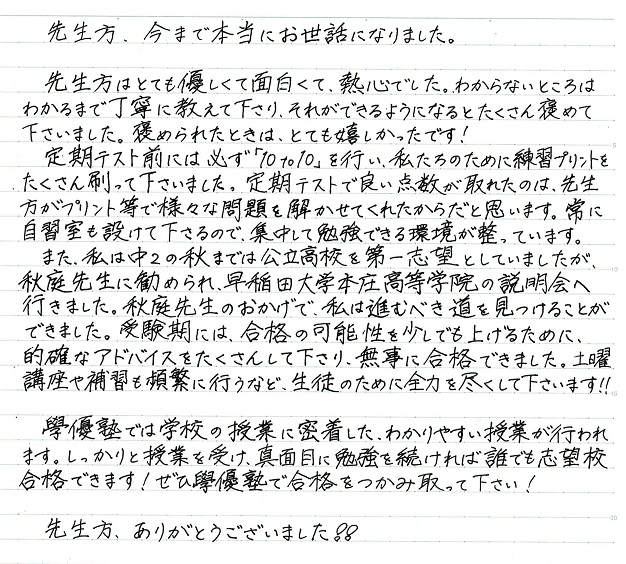 先生方、今まで本当にお世話になりました。
先生方はとても優しくて面白くて、熱心でした。わからないところは
わかるまで丁寧に教えて下さり、それができるようになるとたくさん褒めて
下さいました。褒められたときは、とても嬉しかったです!
定期テスト前には必ず「10to10」を行い、私たちのために練習プリントを
たくさん刷って下さいました。定期テストで良い点数が取れたのは、先生
方がプリント等で様々な問題を解かせてくれたからだと思います。常に
自習室も設けて下さるので、集中して勉強できる環境が整っています。
また、私は中2の秋までは公立高校を第一志望としていましたが、
秋庭先生に勧められ、早稲田大学本庄高等学院の説明会へ
行きました。秋庭先生のおかげで、私は進むべき道を見つけることが
できました。受験期には、合格の可能性を少しでも上げるために、
的確なアドバイスをたくさんして下さり、無事に合格できました。土曜
講座や補習も頻繁に行うなど、生徒のために全力を尽くして下さいます!!
學優塾では学校の授業に密着した、わかりやすい授業が行われ
ます。しっかりと授業を受け、真面目に勉強を続ければ誰でも志望校
合格できます!ぜひ學優塾で合格をつかみ取って下さい!
先生方、ありがとうございました!!